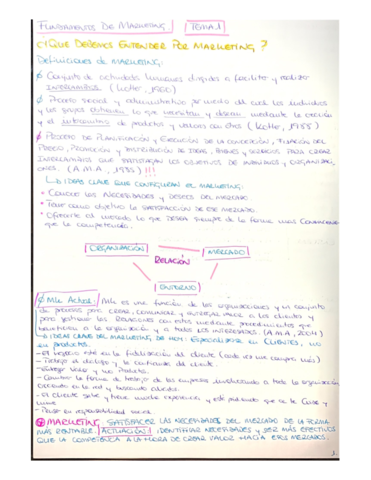 FUNDAMENTOS DE MARKETING TEMA.1
¿QUÉ DEBEMOS ENTENDER POR MARKETING?
Definiciones de MARKETING:
Conjunto de actividades humanas dirigidas a facilitar y realizar
INTERCAMBIOS (Kotler, 1980)
Proceso social y administrativo por medio del cual los individuos
y los grupos obtienen lo que necesitan y desean mediante la creación
y el intercambio de productos y valores con otros (Kotler, 1985)
PROCESO DE PLANIFICACIÓN Y EJECUCIÓN DE LA CONCEPCIÓN, FIJACIÓN DEL
PRECIO, PROMOCIÓN Y DISTRIBUCIÓN DE IDEAS, BIENES Y SERVICIOS PARA CREAR
INTERCAMBIOS QUE SATISFAGAN LOS OBJETIVOS DE INDIVIDUOS Y ORGANIZACI
ONES. (A.M.A., 1985) !!!
IDEAS CLAVE QUE CONFIGURAN EL MARKETING:
* CONOCER LAS NECESIDADES Y DESEOS DEL MERCADO
* Tener como objetivo la SATISFACCIÓN DE ESE MERCADO.
* Ofrecerle al mercado lo que DESEA siempre de la forma más CONVENIENTE
que la competencia.
ORGANIZACIÓN MERCADO
RELACIÓN
ENTORNO
Mk Actual: Mk es una función de las organizaciones y un conjunto
de procesos para CREAR, COMUNICAR Y ENTREGAR VALOR a los clientes y
para gestionar las RELACIONES con estos mediante procedimientos que
beneficien a la organización y a todos los INTERESADOS. (A.M.A., 2004)
IDEAS CLAVE DEL MARKETING DE HOY: Especializarse en CLIENTES, NO
en productos.
- El negocio está en la fidelización del cliente (cada vez me compre más)
- el diálogo y la confianza del cliente.
- Entregar Valor y no Producto.
- Cambiar la forma de trabajo de las empresas involucrando a toda la organización
en la red y educada.
- El cliente sabe y tiene mucha experiencia, y está pidiendo que se le Cuide y
- Pensar en responsabilidad social.
MARKETING. SATISFACER LAS NECESIDADES DEL MERCADO DE LA FORMA
MÁS RENTABLE. ACTUACIÓN: IDENTIFICAR NECESIDADES Y SER MÁS EFECTIVOS
QUE LA COMPETENCIA A LA HORA DE CREAR VALOR HACIA ESOS MERCADOS.